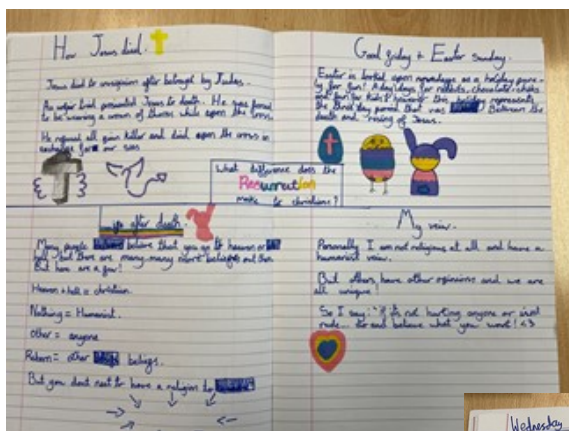 How Jesus died.
Jesus died to after betrayed by Judas.
An unfair trial Jesus to death. He was forced
to be wearing a crown of thorns while upon the cross.
He refused all pain killer and died upon the cross in
exchange for our sins
Good friday + Easter sunday.
Easter is looked upon nowadays as a holiday pure-
ly for fun! A day/days for rabbits, chocolate, chicks
and fun for kids! however this represents
the three day period that was Between the
death and rising of Jesus.
What difference does the
Resurrection
make to christians?
life after death.
Many people believe that you go to heaven or
hell but there are many many more beliefs out there
But here are a few!
Heaven + hell = christian.
Nothing = Humanist.
Other = anyone
Reborn = other beliefs.
But you dont need to have a religion to
My veiw.
Personally I am not religious at all and have a
humanist veiw.
But others have other opinions and we are
all unique!
So I say: "if its not hurting anyone or
rude... do and believe what you want! <3
Wednesday